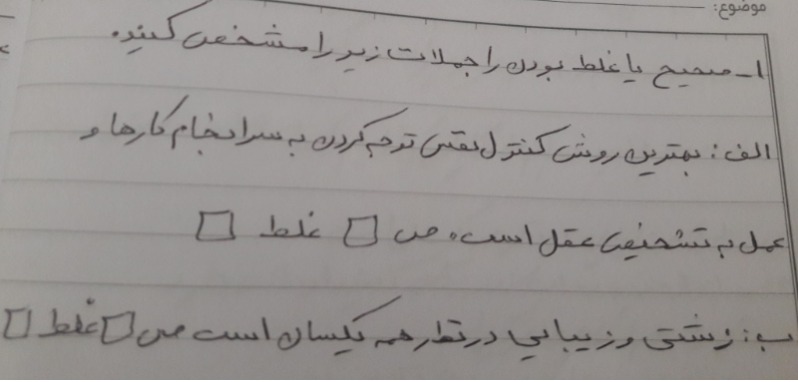 موضوع:
۱ـ صحیح یا غلط بودن را جملات زیر را مشخص کنید.
الف: بهترین روش کنترل نفس توجه کردن به سرانجام کارها و
عمل به تشخیص عقل است. ص □ غلط □
ب: زشتی و زیبایی در نظر همه یکسان است ص □ غلط □